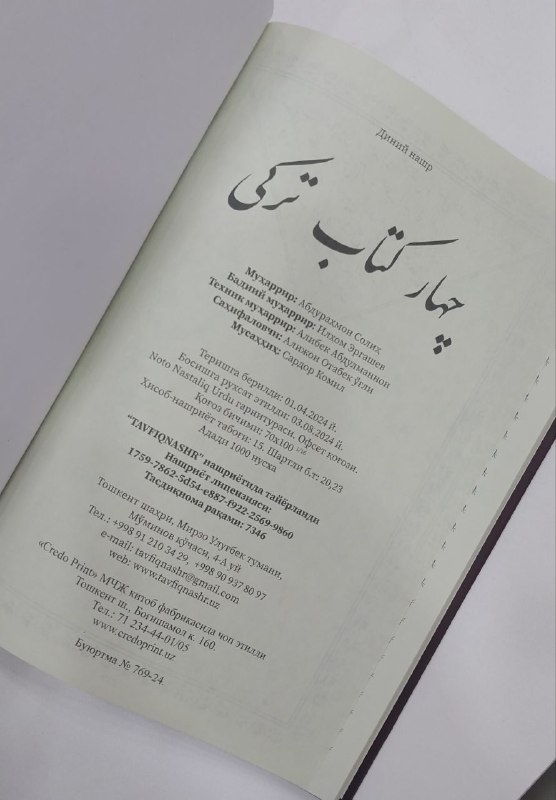 Диний нашр
چهار کتاب ترکی
Муҳаррир: Абдураҳмон Солиҳ
Бадиий муҳаррир: Илхом Эргашев
Техник муҳаррир: Алибек Абдулманнон
Саҳифаловчи: Алижон Отабек ўғли
Мусаҳҳиҳ: Сардор Комил
Теришга берилди: 01.04.2024 й.
Босишга рухсат этилди: 03.08.2024 й.
Noto Nastaliq Urdu гарнитураси. Офсет қоғози.
Қоғоз бичими: 70x100 1/16
Ҳисоб-нашриёт табоғи: 15. Шартли б.т: 20,23
Адади 1000 нусха
"TAVFIQNASHR" нашриётида тайёрланди
Нашриёт лицензияси:
1759-7862-5d54-e887-f922-2569-9860
Тасдиқнома рақами: 7346
Тошкент шаҳри, Мирзо Улуғбек тумани,
Мўминов кўчаси, 4-А уй
Тел.: +998 91 210 34 29, +998 90 937 80 97
e-mail: tavfiqnashr@gmail.com
web: www.tavfiqnashr.uz
«Credo Print» МЧЖ китоб фабрикасида чоп этилли
Тошкент ш., Боғишамол к. 160.
Тел.: 71 234-44-01/05
www.credoprint.uz
Буюртма № 769-24.